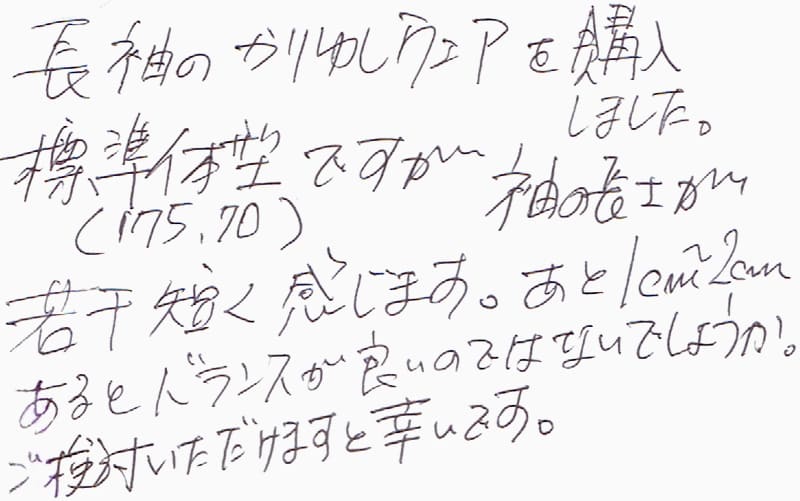 長袖のかりゆしウェアを購入
しました。
標準体型ですが 袖の長さが
(175.70)
若干短く感じます。あと1cm~2cm
あるとバランスが良いのではないでしょうか。
ご検討いただけますと幸いです。